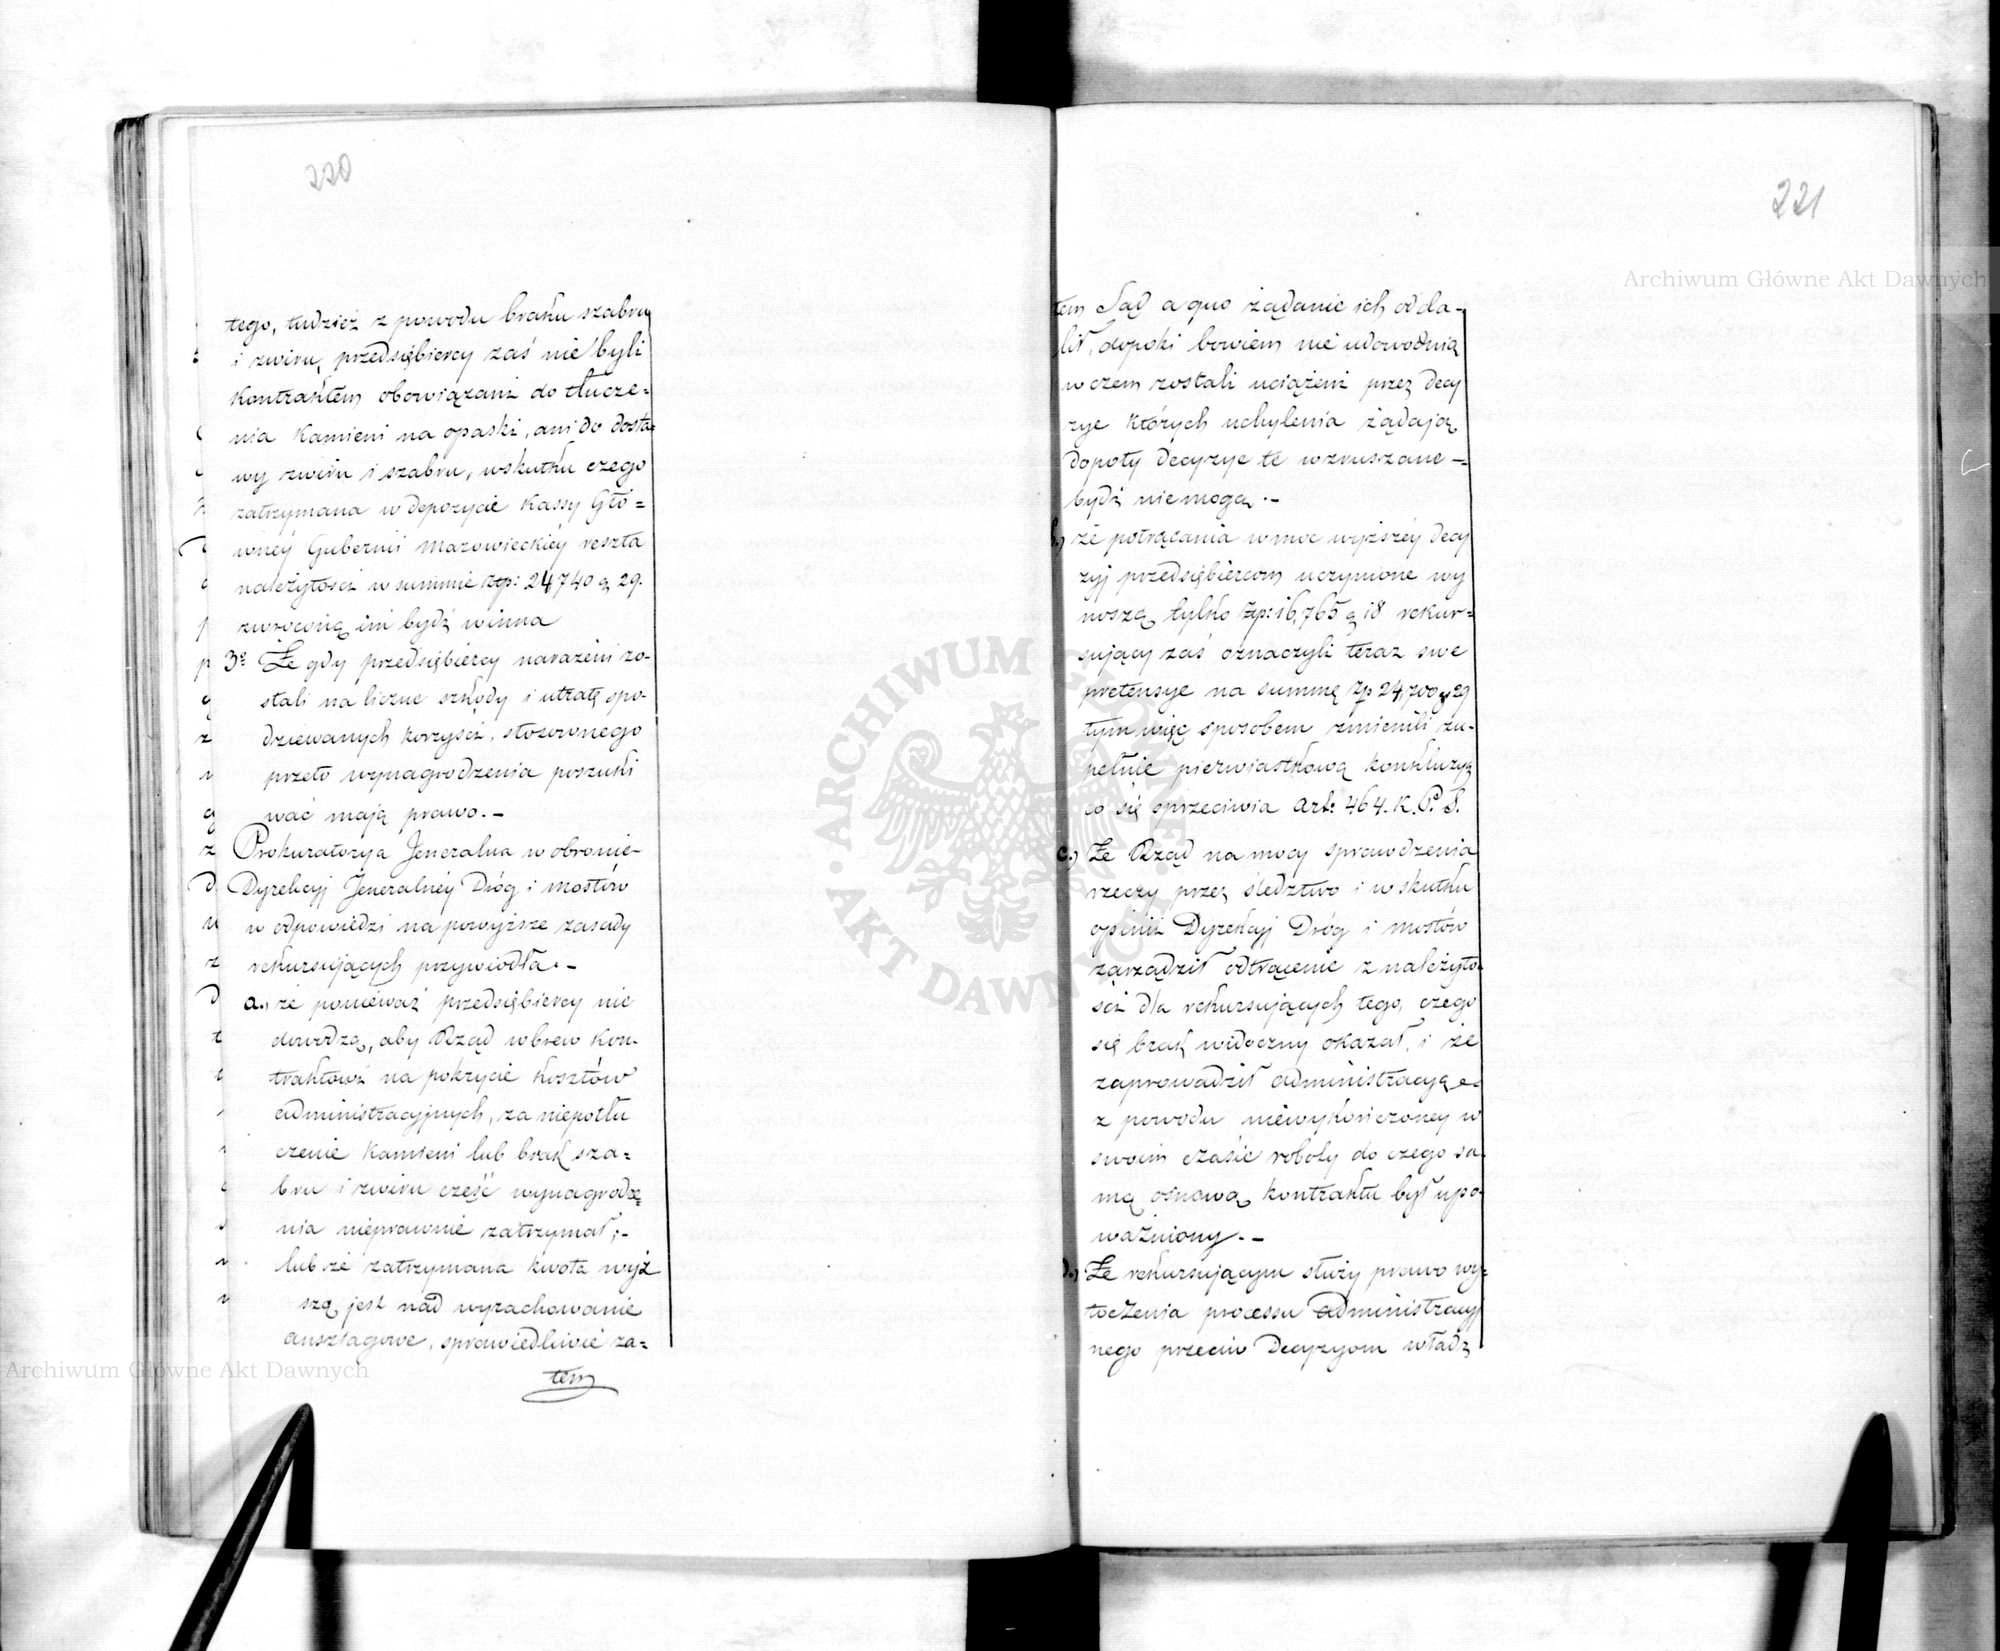 220
tego, tudzież z powodu braku szabru
i zwiru, przedsiębiercy zaś nie byli
kontraktem obowiązani do tłucze=
nia kamieni na opaski, ani do dosta=
wy zwiru i szabru, wskutku czego
zatrzymana w depozycie Kassy Głó=
wnéy Gubernii Mazowieckiéy reszta
należytości w summie Złp: 24740 g 29.
zwróconą im bydź winna
3º Że gdy przedsiębiercy narażeni zo-
stali na liczne szkody i utratę spo-
dziewanych korzyści, stosownego
przeto wynagrodzenia poszuki
wać mają prawo.-
Prokuratorya Jeneralna w obronie-
Dyrekcyj Jeneralnéy Dróg i mostów
w odpowiedzi na powyższe zasady
rekursujących przywiodła.-
a., że ponieważ przedsiębiercy nie
dowodzą, aby Rząd wbrew kon-
traktowi na pokrycie kosztów
administracyjnych, za niepotłu
czenie kamieni lub brak sza=
bru i zwiru część wynagrodze=
nia nieprawnie zatrzymał;-
lub że zatrzymana kwota wyż
szą jest nad wyrachowanie
anszlagowe, sprawiedliwie za=
tem
221
tem Sąd a quo żądanie ich odda-
lił, dopoki bowiem nie udowodnią
w czem zostali uciążeni przez decy
zye których uchylenia żądają
dopoty decyzye te wzruszane=
bydź nie mogą.-
b.) że potrącania w moc wyższéy decy
zyj przedsiębiercom uczynione wy
noszą tylko Złp: 16,765 g 18 rekur=
sujący zaś oznaczyli teraz swe
pretensye na summę Złp 24,700 g 29
tym więc sposobem zmienili zu-
pełnie pierwiastkową konkluzyą
co się sprzeciwia art: 464. K. P. S.
c.) Że Rząd na mocy sprawdzenia
rzeczy przez śledztwo i w skutku
opinii Dyrekcyj Dróg i mostów
zarządził odtrącenie z należyto-
ści dla rekursujących tego, czego
się brak widoczny okazał, i że
zaprowadził administracyą
z powodu niewykończoney w
swoim czasie roboty do czego sa-
mą osnową kontraktu był upo-
ważniony.-
d.) Że rekursującym służy prawo wy=
toczenia processu administracyj
nego przeciw Decyzyom władz
Archiwum Główne Akt Dawnych
Archiwum Główne Akt Dawnych
ARCHIWUM GŁÓWNE AKT DAWNYCH